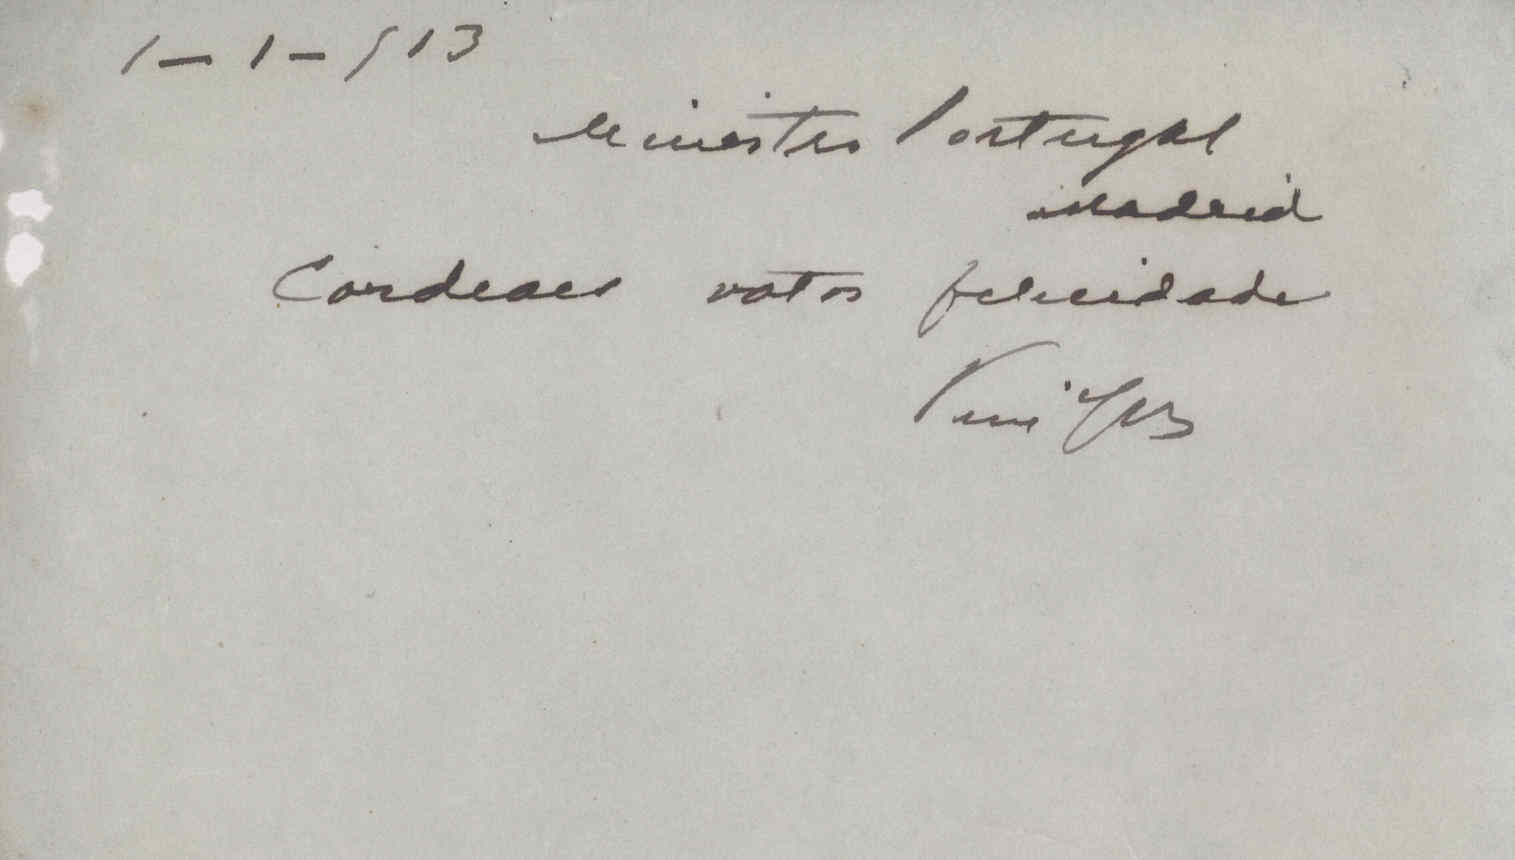 1-1-913
Ministro Portugal
Madrid
Cordeaes votos felicidade